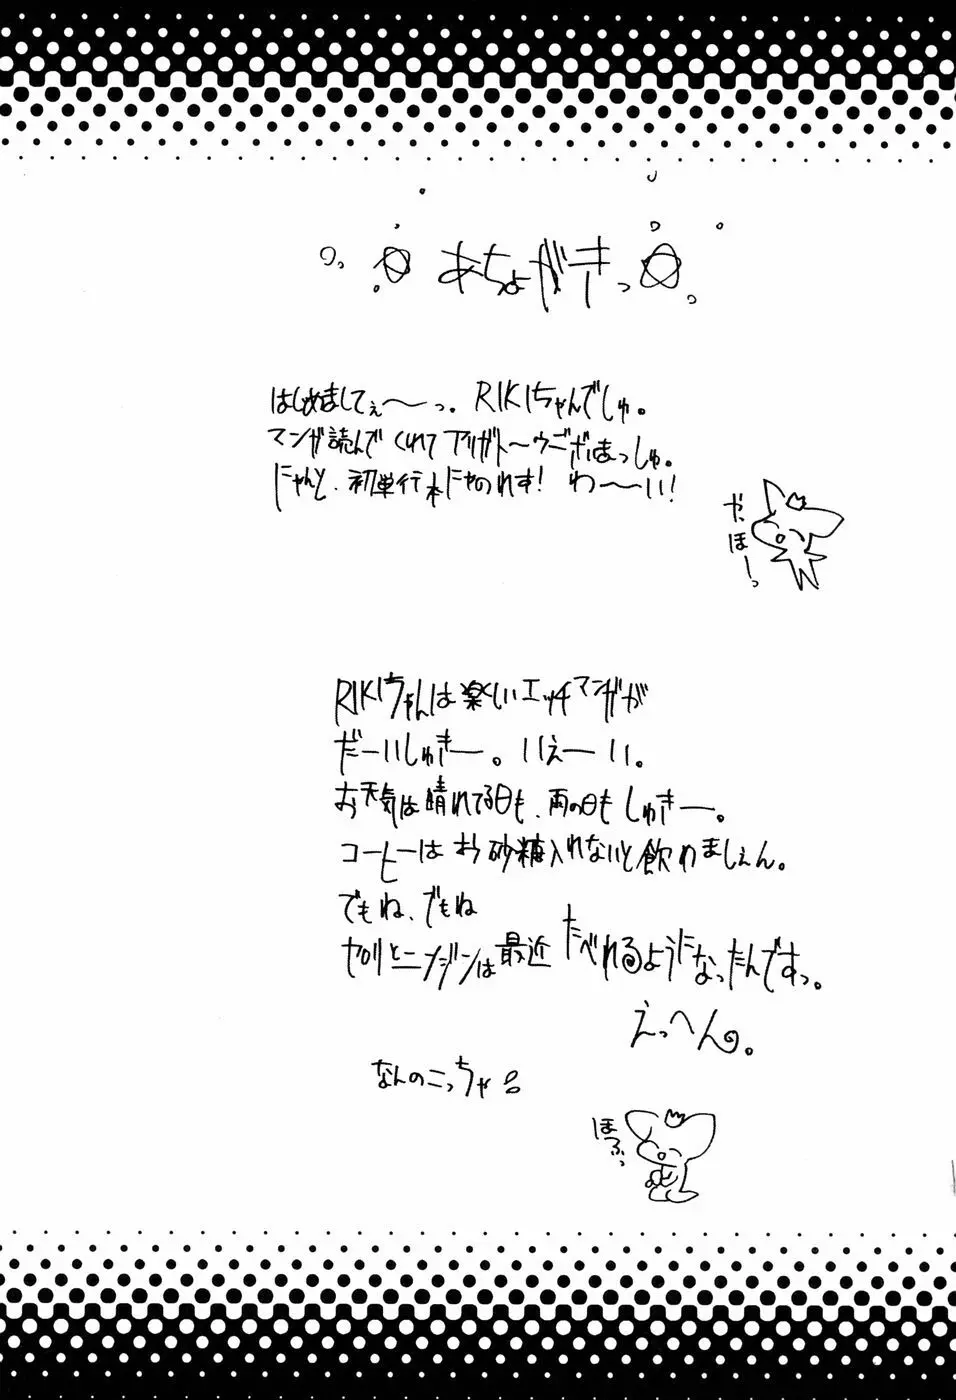 あちょがきっ
はじめましてぇ〜っ。RIKIちゃんでしゅ。
マンガ読んでくれてアリガト〜ウございまっしゅ。
にゃんと、初単行本にゃのれす! わ〜い!
やっほーっ
RIKIちゃんは楽しいエッチマンガが
だーいしゅきー。いぇーい。
お天気は晴れてる日も、雨の日もしゅきー。
コーヒーはお砂糖入れないと飲めましぇん。
でもね、でもね
セロリとニンジンは最近たべれるようになったんですっ。
えっへん。
なんのこっちゃ
ほふっ